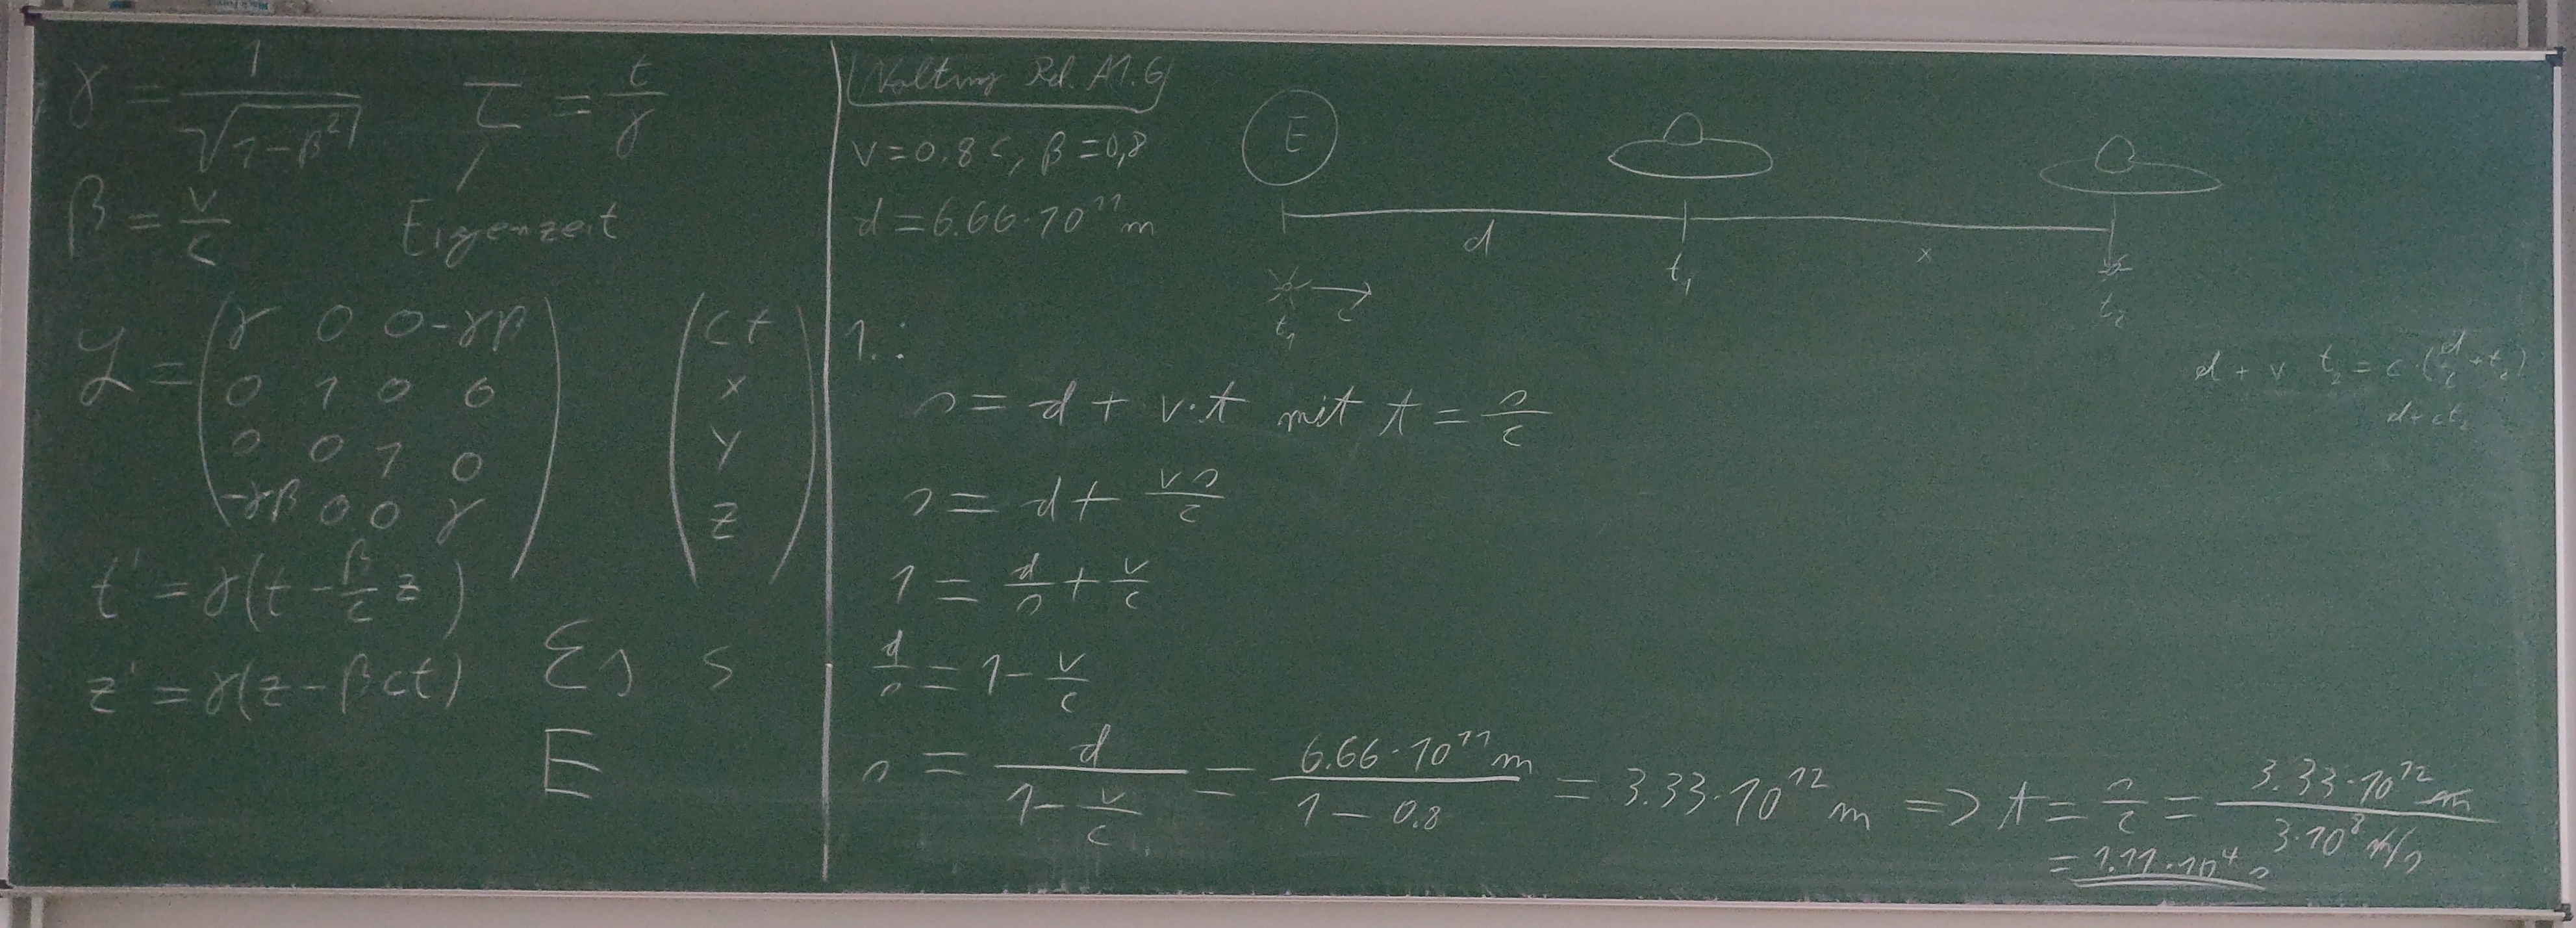 γ = 1/√(1-β²)   τ = t/γ
β = v/c   Eigenzeit
L = (γ 0 0 -γβ)   (ct)
(0 1 0 0)   (x)
(0 0 1 0)   (y)
(-γβ 0 0 γ)   (z)
t' = γ(t - β/c z)
z' = γ(z - βct)   Σ, S
E
Nolting Rel. A1.6
v = 0.8c, β = 0,8
d = 6.66·10¹¹ m
E
d   t₁   x
c
t₁   t₂
1.:
s = d + v·t mit t = s/c
s = d + vs/c
1 = d/s + v/c
d/s = 1 - v/c
s = d/(1 - v/c) = 6.66·10¹¹ m/(1 - 0.8) = 3.33·10¹² m => t = s/c = 3.33·10¹² m/(3·10⁸ m/s)
= 1.11·10⁴ s
d + v t₂ = c·(d/c + t₂)
d + ct₂